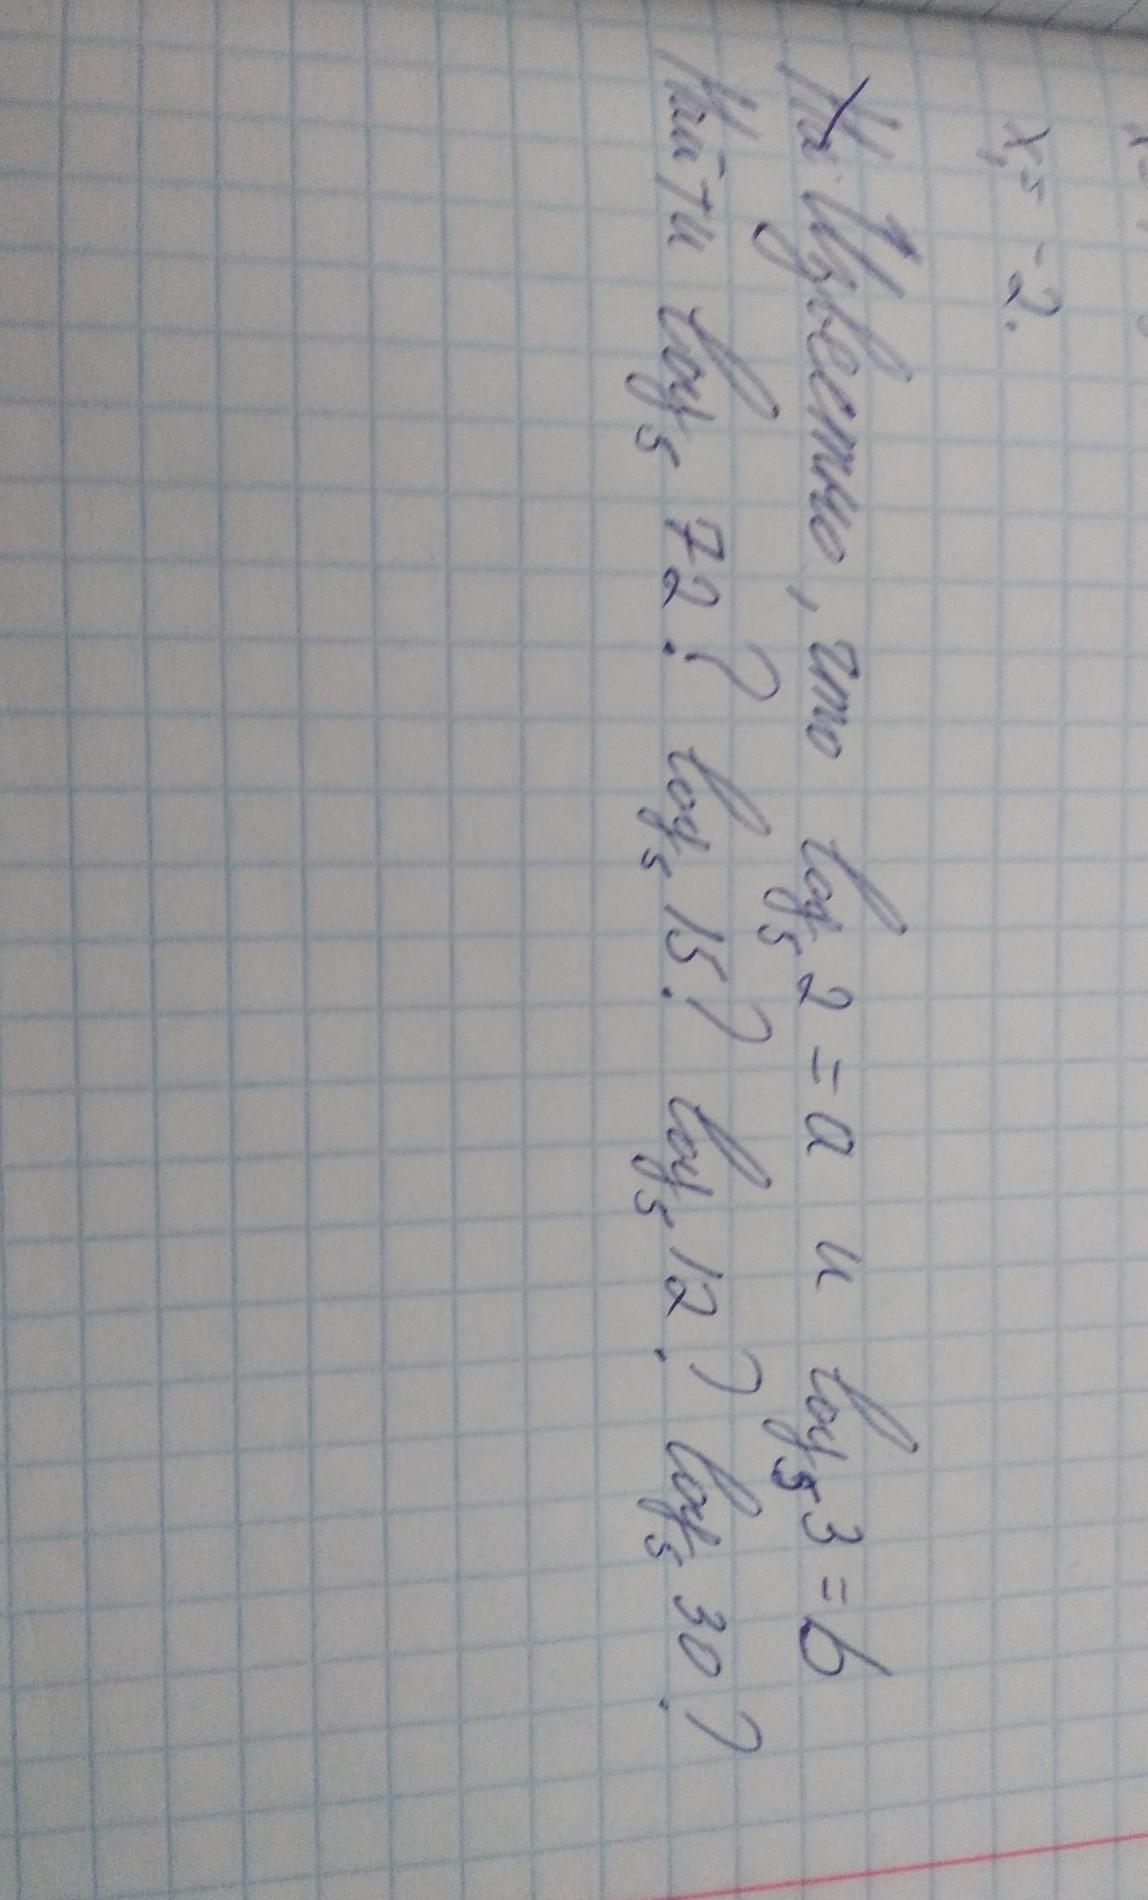 x₁ = -2.
Известно, что log₅ 2 = a и log₅ 3 = b
Найти log₅ 72? log₅ 15? log₅ 12? log₅ 30?